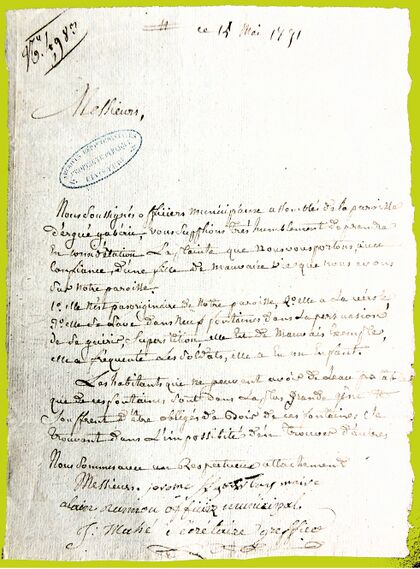 ce 15 Mai 1791
Messieurs,
ARCHIVES DEPARTEMENTALES
PROPRIÉTÉ PUBLIQUE
FINISTÈRE
Nous soussignés officiers municipaux assemblés de la paroisse
d'ergué gaberic vous supplions très humblement de prendre
En considération La plainte que nous vous portons, avec
Confiance, d'une fille de mauvaise vie que nous avons
sur notre paroisse.
1º elle n'est pas originaire de notre paroisse, 2º elle a La
3º elle se Lave dans neuf fontaines dans La persuasion
de se guérir, superstition elle est de mauvais Exemple,
elle a fréquenté les soldats, elle a Eu un Enfant.
Les habitants qui ne peuvent avoir de L'eau
que de ces fontaines sont dans La plus Grande gêne et
souffrent d'être obligés de Boire de ces fontaines, se
trouvant dans L'impossibilité d'en trouver d'autres
Nous sommes avec un Respectueux attachement
Messieurs, maire
alain officier municipal
J: Mahé secrétaire greffier